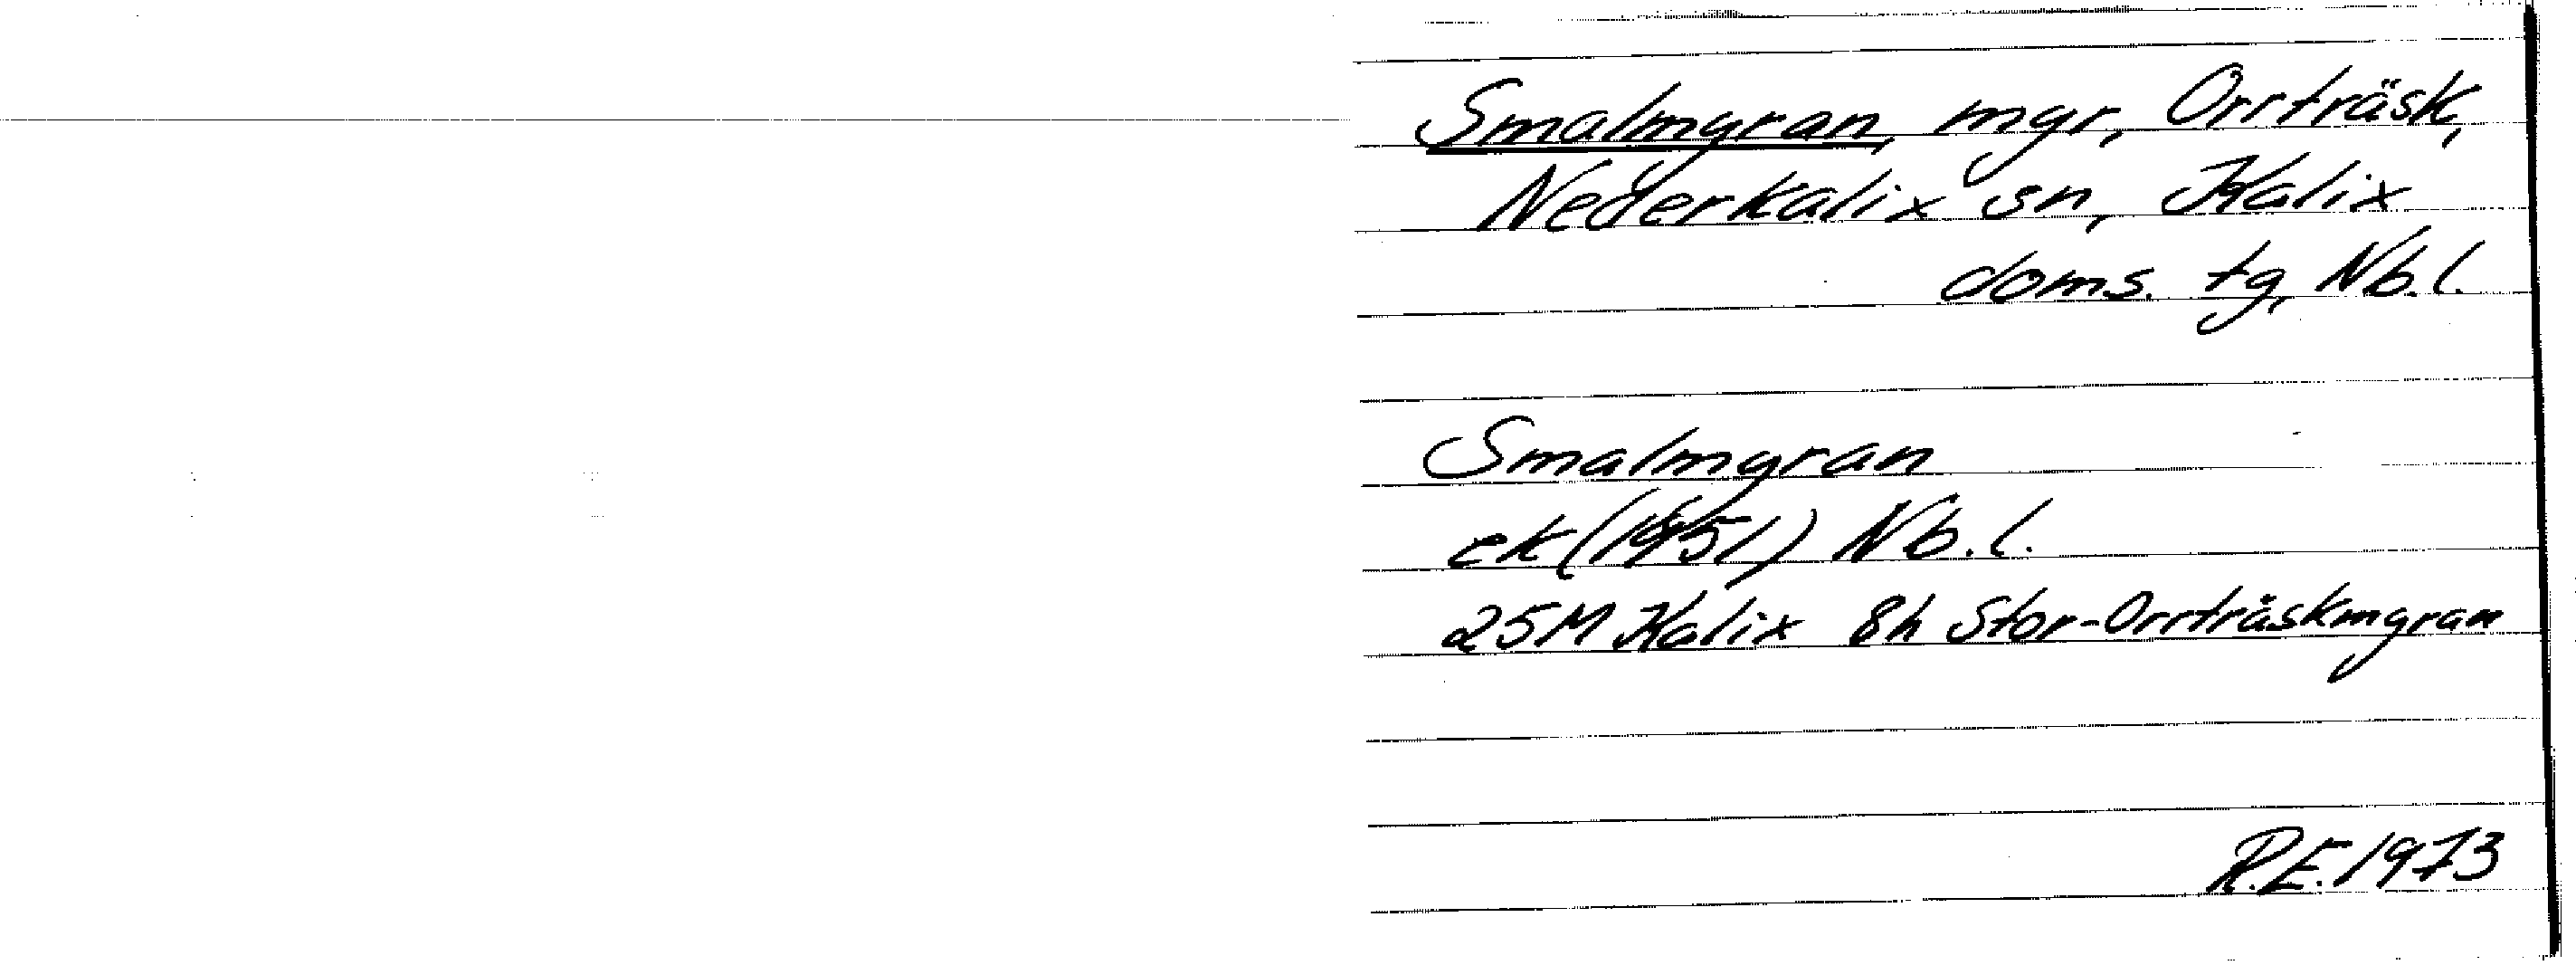 Smalmyran, myr, Orrträsk,
Nederkalix sn, Kalix
doms. tg, Nb.l.
Smalmyran
ek (1951) Nb.l.
25M Kalix 8h Stor-Orrträskmyran
R.E. 1973